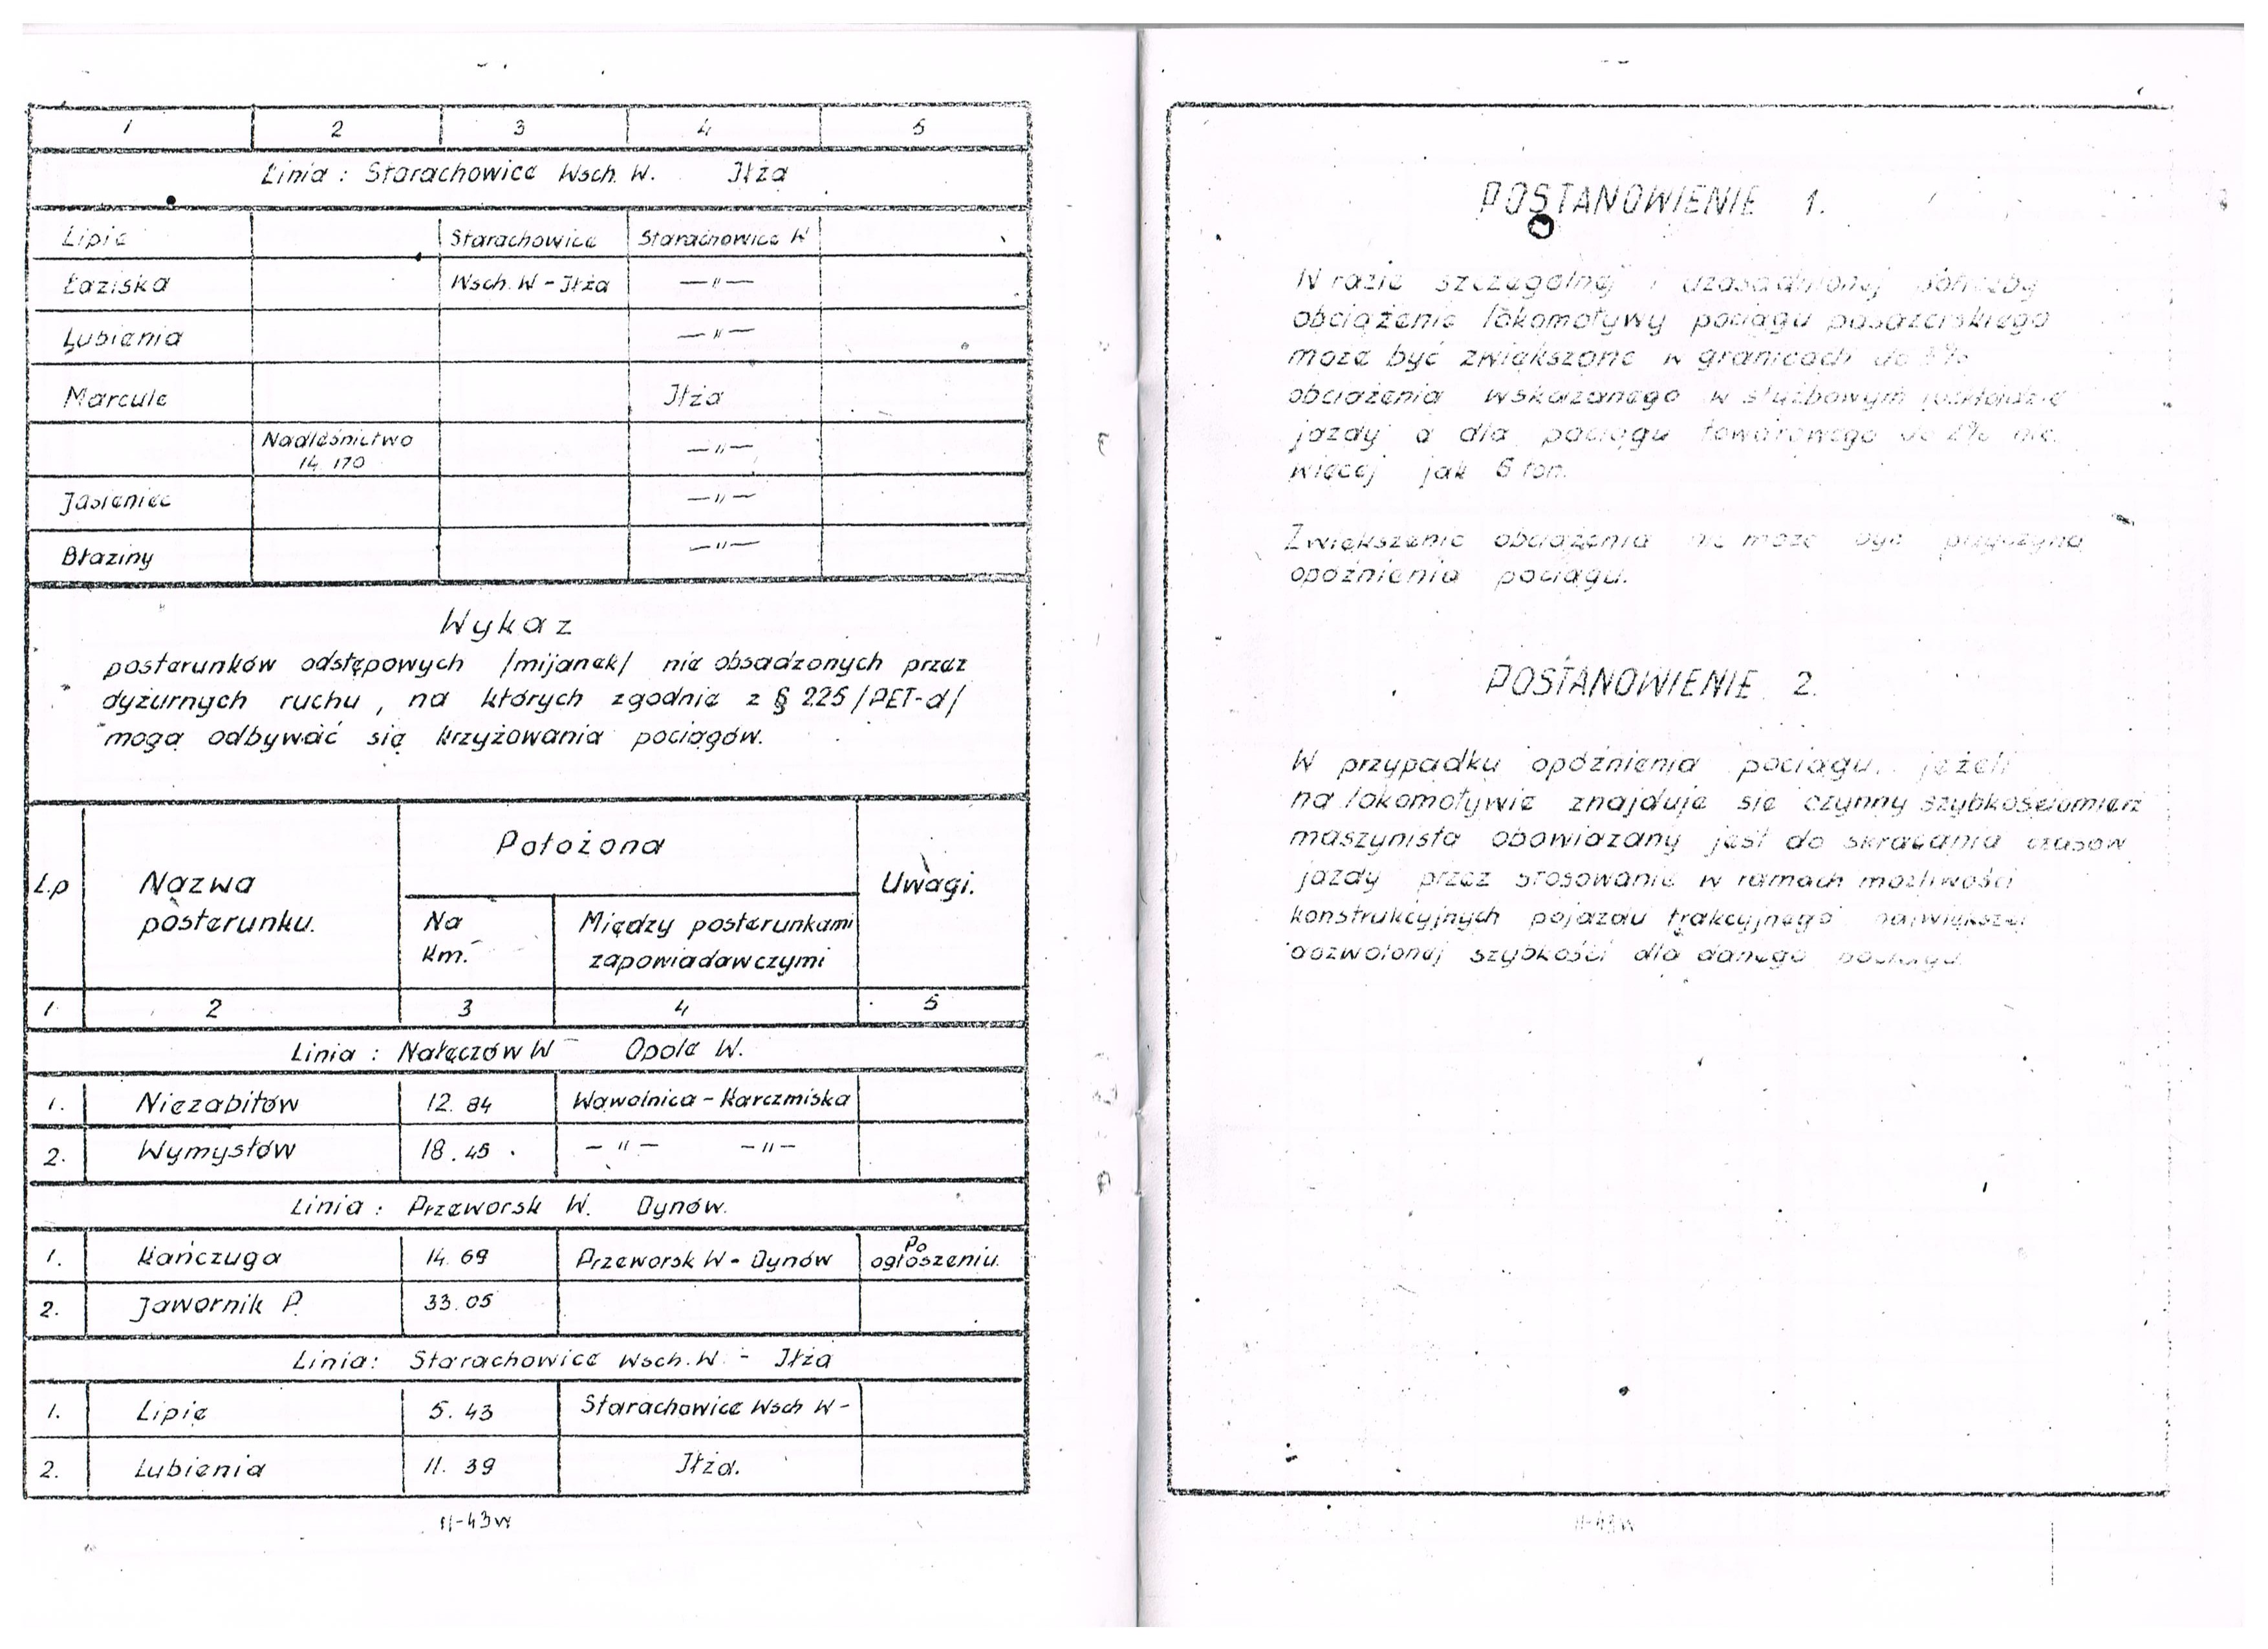 1 2 3 4 5
Linia : Starachowice Wsch. W. Iłża
Lipie Starachowice Starachowice W
Łaziska Wsch. W - Iłża — " —
Lubienia — " —
Marcule Iłża
Nadleśnictwo — " —
14 170
Jasieniec — " —
Błaziny — " —
Wykaz
posterunków odstępowych /mijanek/ nie obsadzonych przez
dyżurnych ruchu, na których zgodnie z § 225 /PET-d/
mogą odbywać się krzyżowania pociągów.
Położona
L.p Nazwa Uwagi.
posterunku. Na Między posterunkami
km. zapowiadawczymi
1 2 3 4 5
Linia : Nałęczów W - Opole W.
1. Niezabitów 12. 84 Wąwolnica - Karczmiska
2. Wymysłów 18. 45 — " — — " —
Linia : Przeworsk W. Dynów.
1. Kańczuga 14. 69 Przeworsk W - Dynów Po
ogłoszeniu.
2. Jawornik P. 33. 05
Linia: Starachowice Wsch. W. - Iłża
1. Lipie 5. 43 Starachowice Wsch W -
2. Lubienia 11. 39 Iłża.
11-43w
POSTANOWIENIE 1.
W razie szczególnej i uzasadnionej
obciążenie lokomotywy pociągu pasażerskiego
może być zwiększone w granicach do
obciążenia wskazanego w służbowym rozkładzie
jazdy a dla pociągu towarowego do
więcej jak 6 ton.
Zwiększenie obciążenia nie może być przyczyną
opóźnienia pociągu.
POSTANOWIENIE 2.
W przypadku opóźnienia pociągu, jeżeli
na lokomotywie znajduje się czynny szybkościomierz
maszynista obowiązany jest do skracania czasów
jazdy przez stosowanie w ramach możliwości
konstrukcyjnych pojazdu trakcyjnego największej
dozwolonej szybkości dla danego pociągu.
11-43w